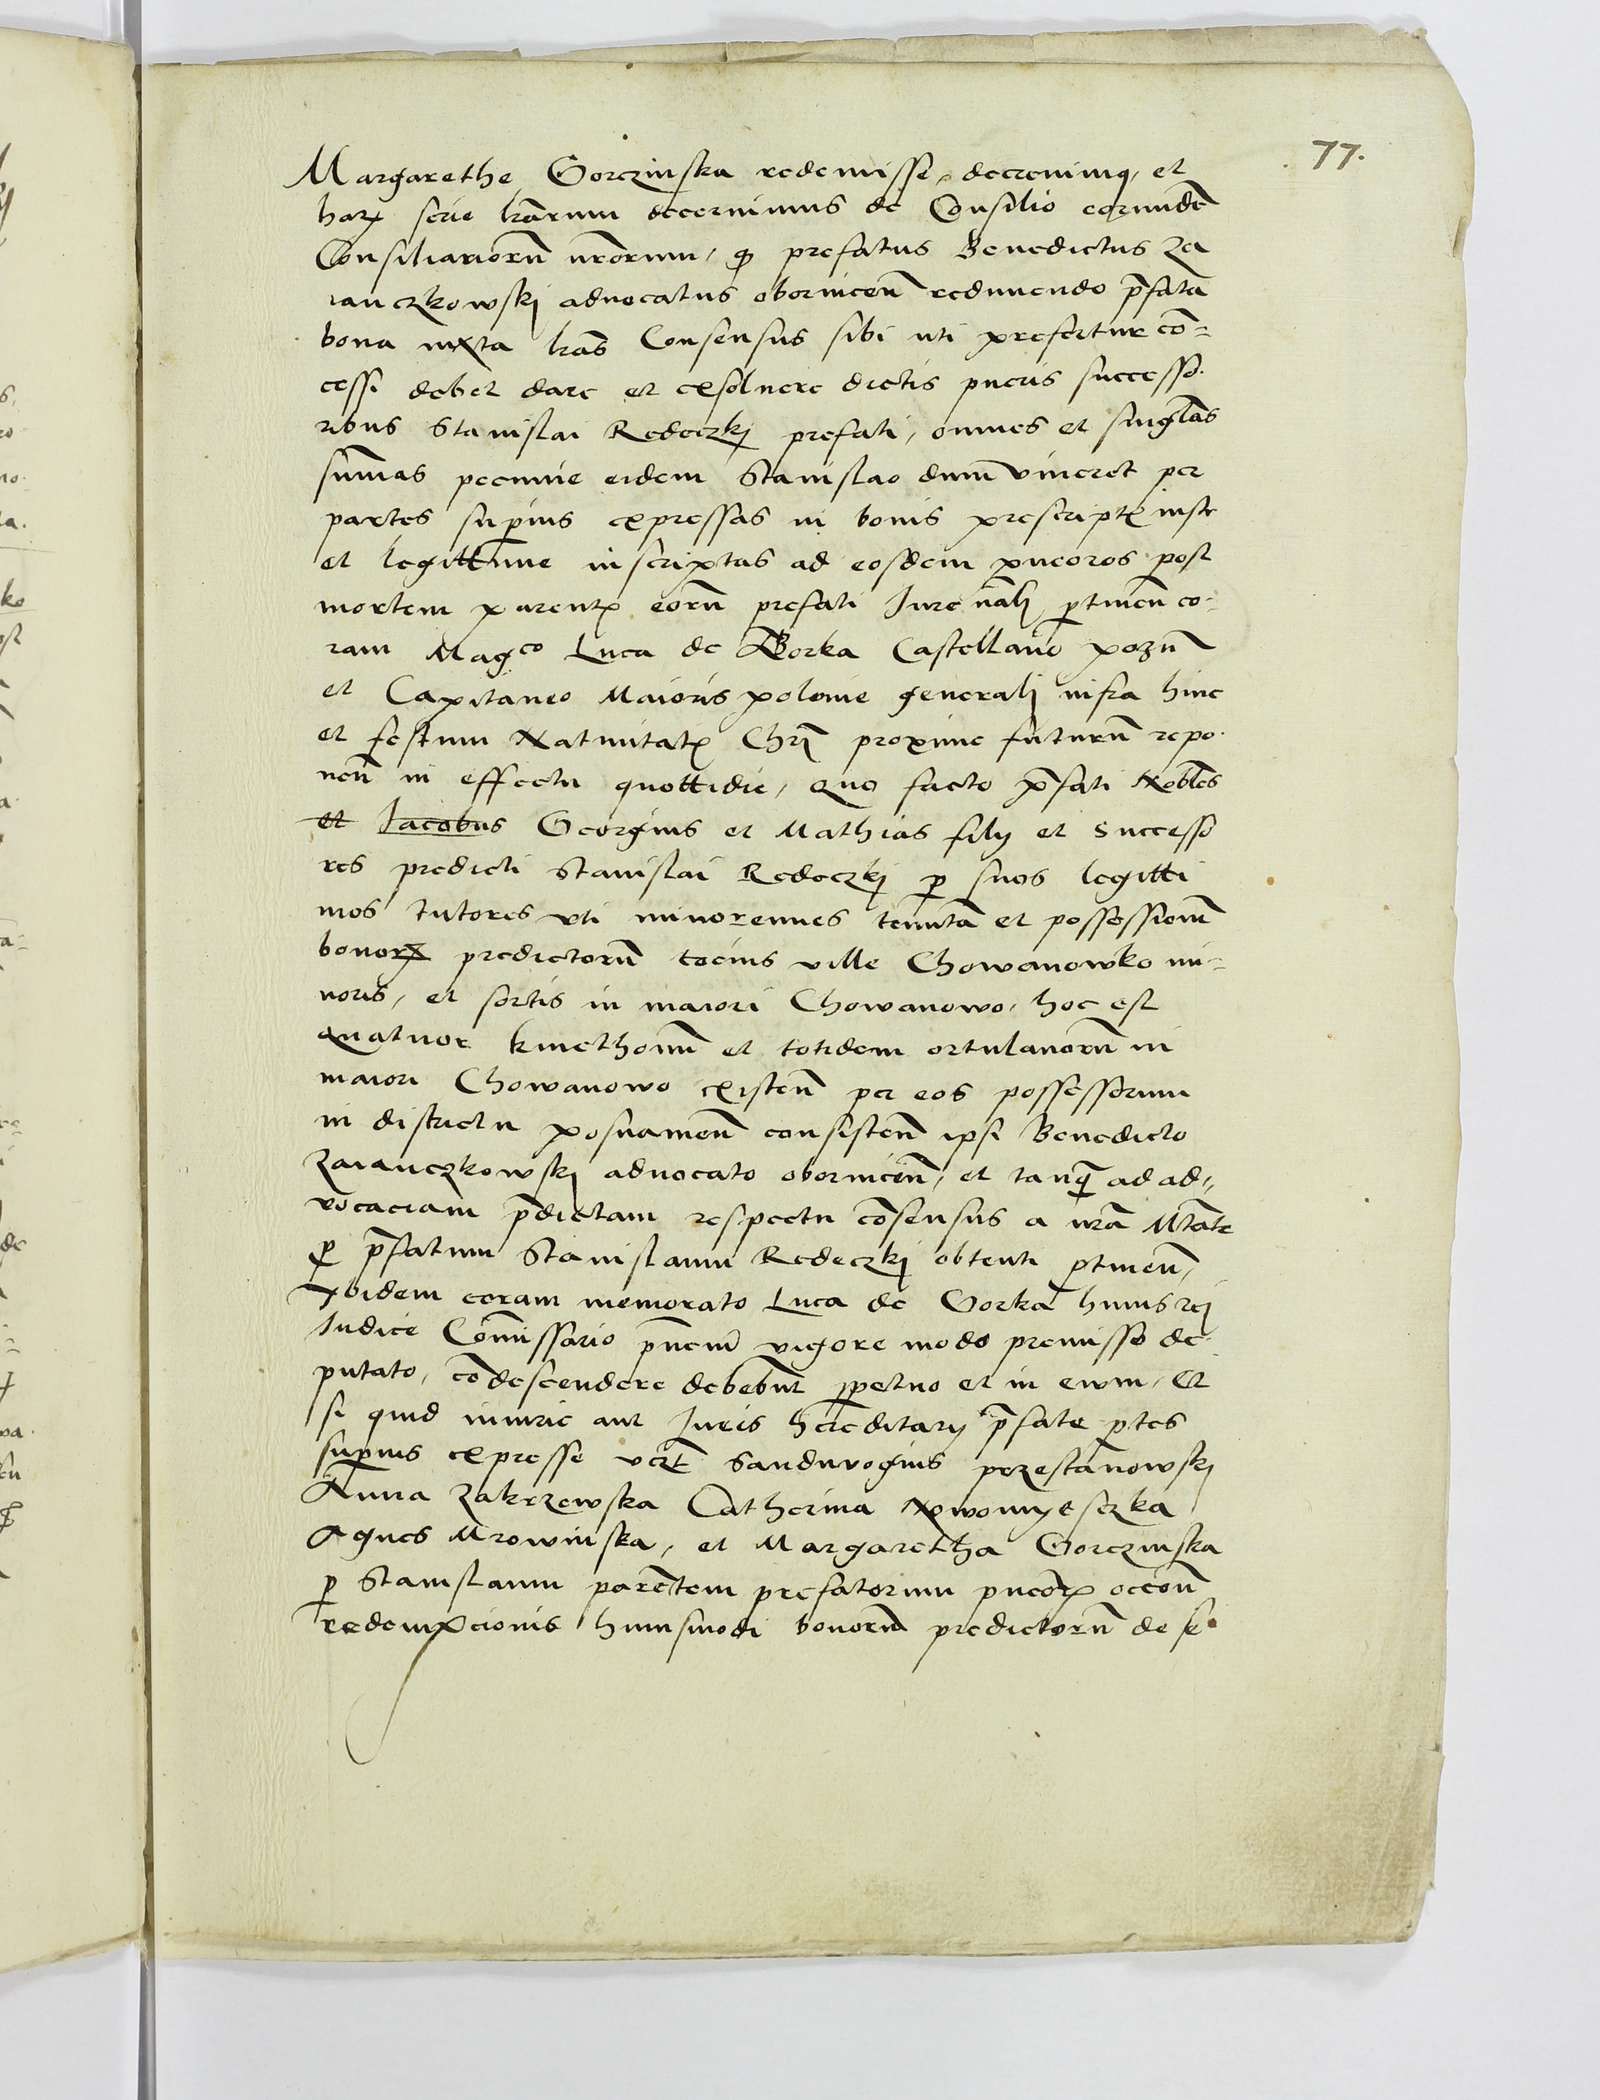 77.
Margarethe Gorczinska redemisse, decrevimusq, et
harx serie lrārum decernimus de Consilio eorundē
Consiliariorū nrōrum, q prefatus Benedictus Za
ianczkowskj advocatus obornicen̄ redimendo p̄fata
bona iuxta lrās Consensus sibi uti prefertur cō-
cessi debet dare et exsolvere dictis pueris successo-
ribus Stanislai Redeczkj prefati, omnes et singl̄as
sum̄as pecunie eidem Stanislao dum viveret per
partes sup̄ius expressas in bonis prescriptx iuste
et legittime inscriptas ad eosdem pueros post
mortem parentx eorū prefati Jure nālj p̄tinen̄ co-
ram Mag^co Luca de Gorka Castellano pozn̄
et Capitaneo Maioris polonie generalj infra hinc
et festum Nativitatx Chrī proxime futurū repo-
nen̄ in effectu quottidie, Quo facto p̄fati Nobl̄es
et Jacobus Georgius et Mathias filij et Successo
res predicti Stanislai Redeczkj p suos legitti
mos tutores uti minorennes tenutā et possessionem
bonorx predictorū tocius ville Chowanowko mi-
noris, et sortis in maiori Chowanowo, hoc est
quatuor kmethonum et totidem ortulanorū in
maiori Chowanowo existen̄ per eos possessorum
in districtu posnanien̄ consisten̄ ipsi Benedicto
Zaianczkowskj advocato obornicen̄, et tanq̄ ad ad-
vocaciam p̄dictam respectu cōsensus a nrā Mtāte
p p̄fatum Stanislaum Redeczkj obtenti p̄tinen̄,
Ibidem coram memorato Luca de Gorka huius rej
Judice Com̄issario pn̄cium vigore modo premisso de-
putato, cōdescendere debebūt p̄petuo et in evum, Et
si quid iniurie aut Juris hereditarij p̄fate p̄tes
sup̄ius expresse vc̄zt Sandivogius przestanowskj
Anna Zakrzewska Catherina Nyewomyesczka
Agnes Mrowinska, et Margaretha Gorczinska
p Stanislaum parētem prefatorum pueorx occōn̄
redempcionis huiusmodi bonorū predictorū de se